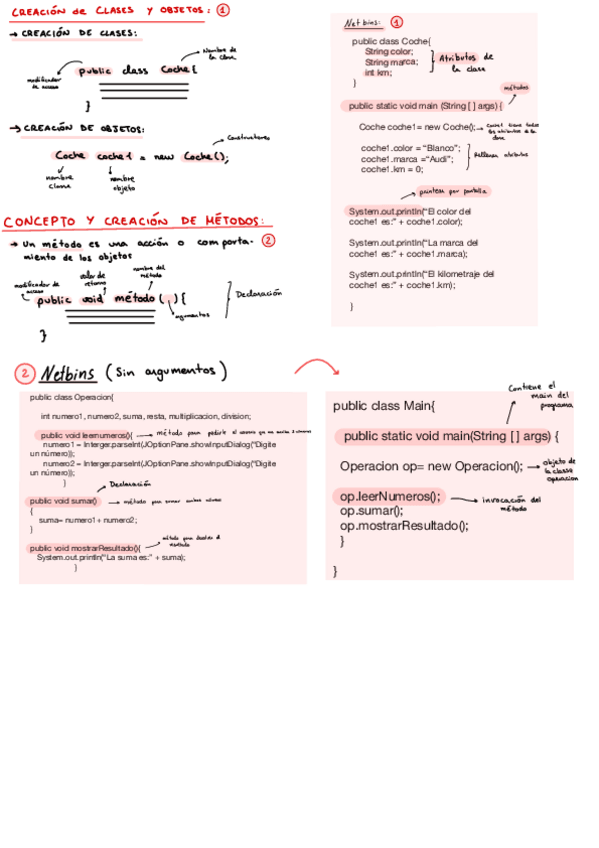 CREACIÓN de CLASES Y OBJETOS: 1
→ CREACIÓN DE CLASES:
Nombre de
la clase
modificador
de acceso
public class Coche {
}
→ CREACIÓN DE OBJETOS:
Constructores
Coche coche1 = new Coche();
nombre
clase
nombre
objeto
CONCEPTO Y CREACIÓN DE MÉTODOS:
→ Un método es una acción o comporta- 2
miento de los objetos
modificador de
acceso
valor de
retorno
nombre del
método
public void método ( , ) {
argumentos
Declaración
}
Netbins: 1
public class Coche{
String color;
String marca;
int km;
Atributos de
la clase
}
métodos
public static void main (String [ ] args) {
Coche coche1= new Coche();
coche1 tiene todos
los atributos de la
clase
coche1.color = “Blanco”;
coche1.marca =“Audi”;
coche1.km = 0;
Rellenar atributos
printear por pantalla
System.out.println(“El color del
coche1 es:” + coche1.color);
System.out.println(“La marca del
coche1 es:” + coche1.marca);
System.out.println(“El kilometraje del
coche1 es:” + coche1.km);
}
2 Netbins (Sin argumentos)
public class Operacion{
int numero1, numero2, suma, resta, multiplicacion, division;
public void leernumeros(){ → método para pedirle al usuario que
numero1 = Interger.parseInt(JOptionPane.showInputDialog(“Digite
un número));
numero2 = Interger.parseInt(JOptionPane.showInputDialog(“Digite
un número));
}
Declaración
public void sumar() → método para sumar ambos
{
suma= numero1+ numero2;
}
método para
resultado
public void mostrarResultado(){
System.out.println(“La suma es:” + suma);
}
Contiene el
main del
programa
public class Main{
public static void main(String [ ] args) {
Operacion op= new Operacion();
→ objeto de
la clase
operacion
op.leerNumeros();
→ invocación del
método
op.sumar();
op.mostrarResultado();
}
}